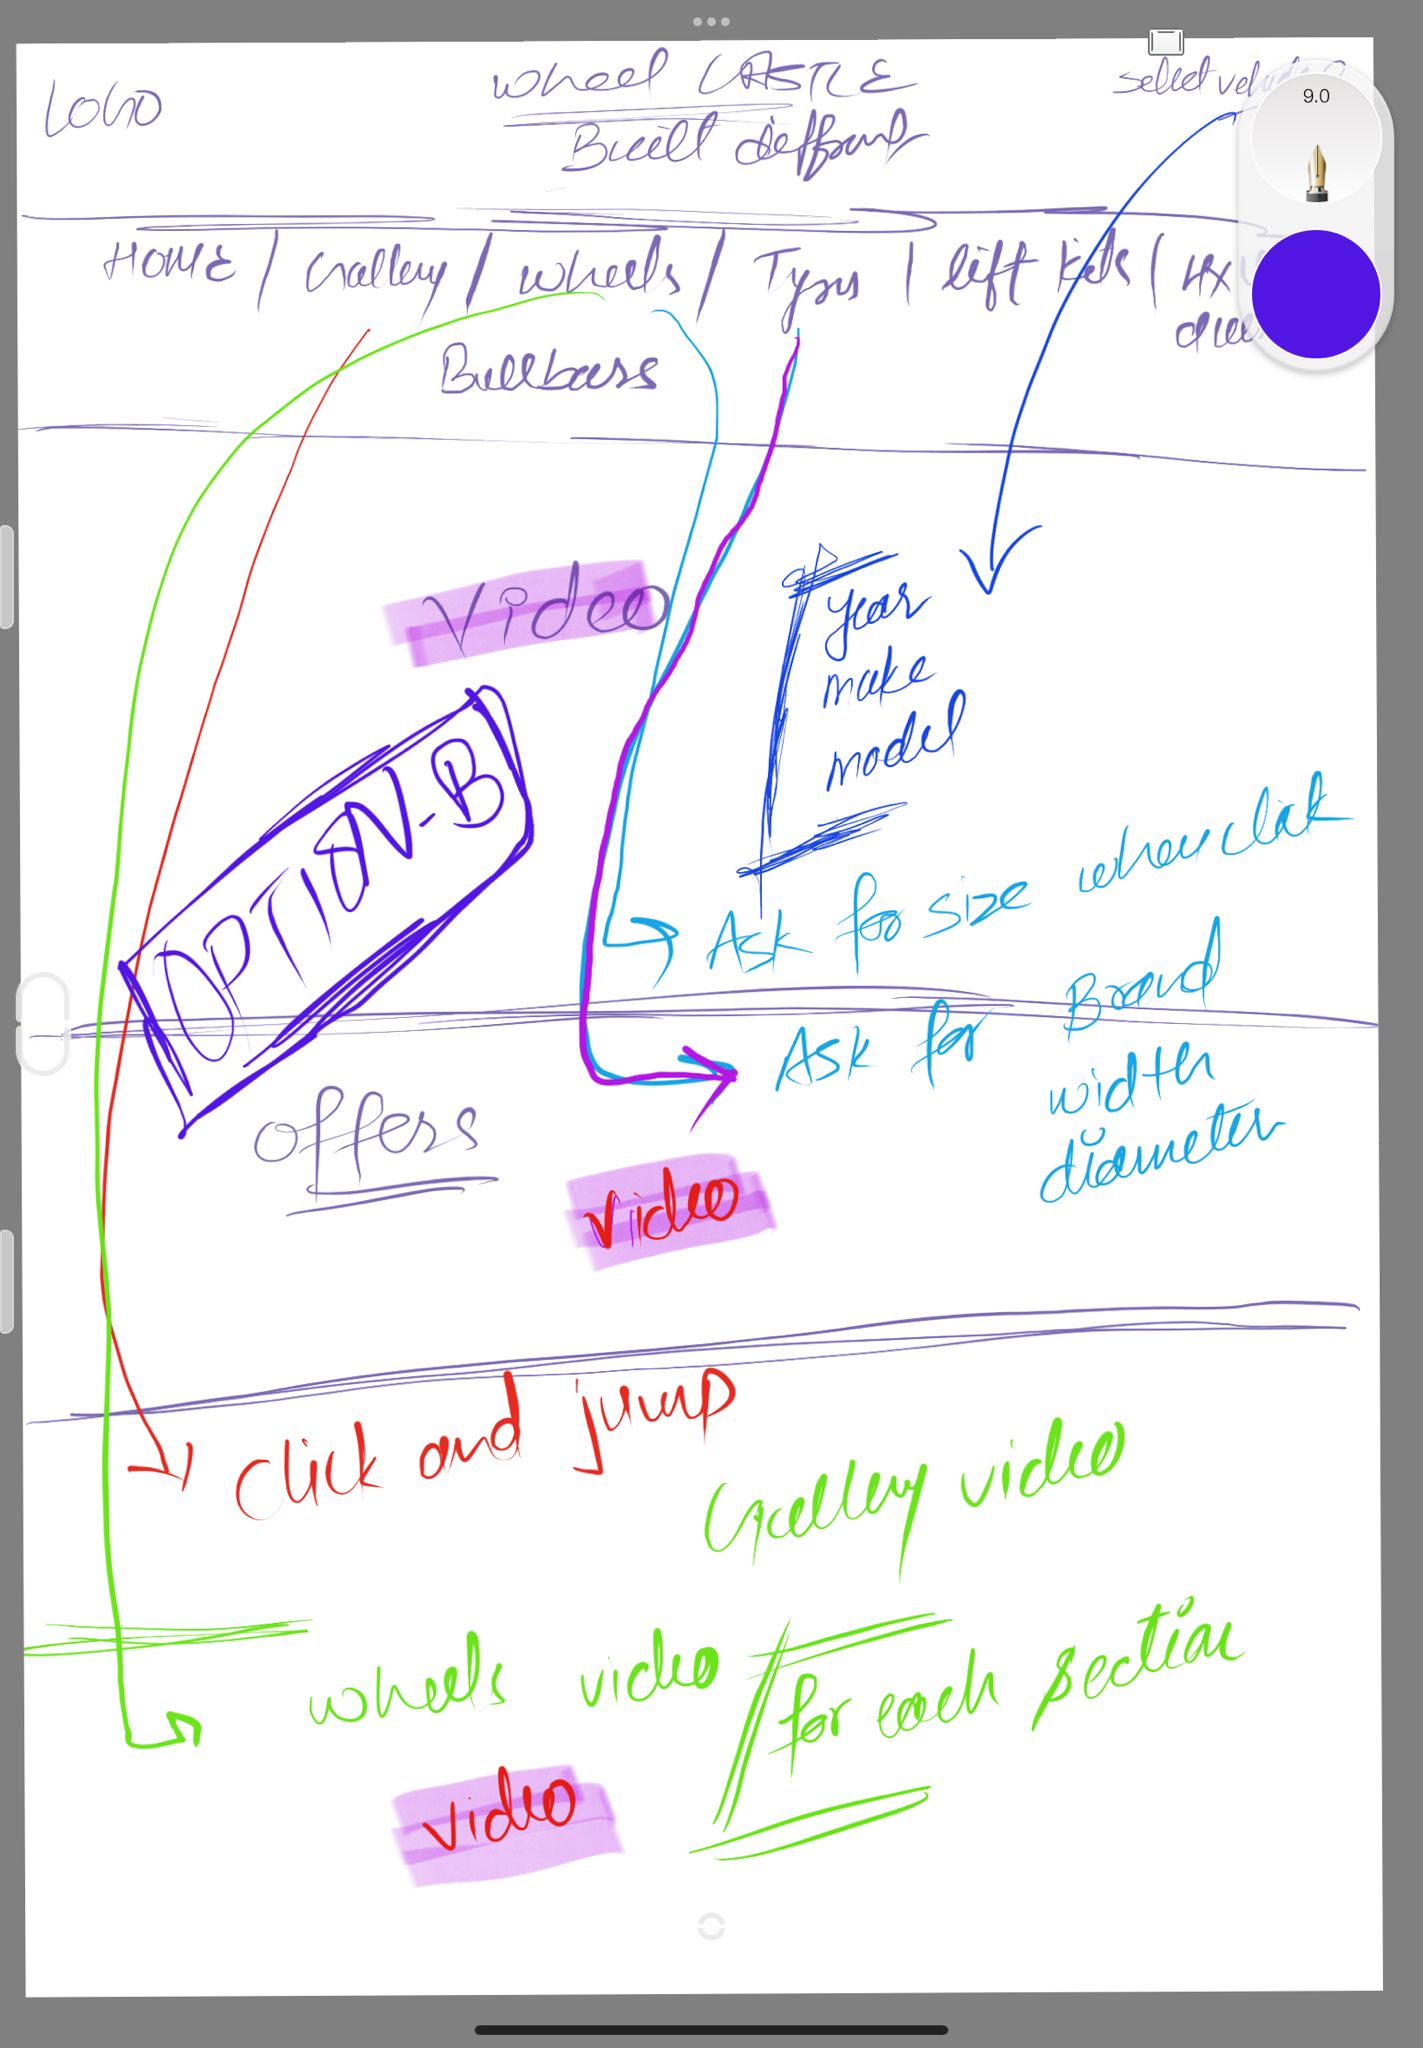 LOGO
wheel CASTLE
select vehicle
Built diffrent
9.0
HOME / Gallery / wheels / Tyres | lift kits | 4X
Bullbars
Video
year
make
model
OPTION-B
Ask for size when click
Ask for Brand
width
diameter
offers
Video
click and jump
Gallery video
wheels video
for each section
video